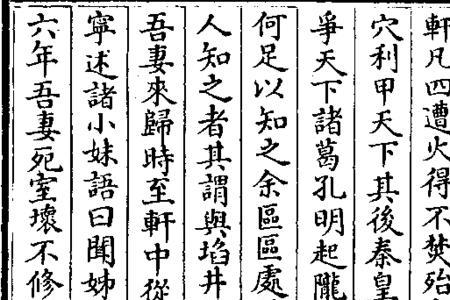 軒凡四遭火得不焚殆
穴利甲天下其後秦皇
爭天下諸葛孔明起隴
何足以知之余區區處
人知之者其謂與埳井
吾妻來歸時至軒中從
寧述諸小妹語曰聞姊
六年吾妻死室壞不修